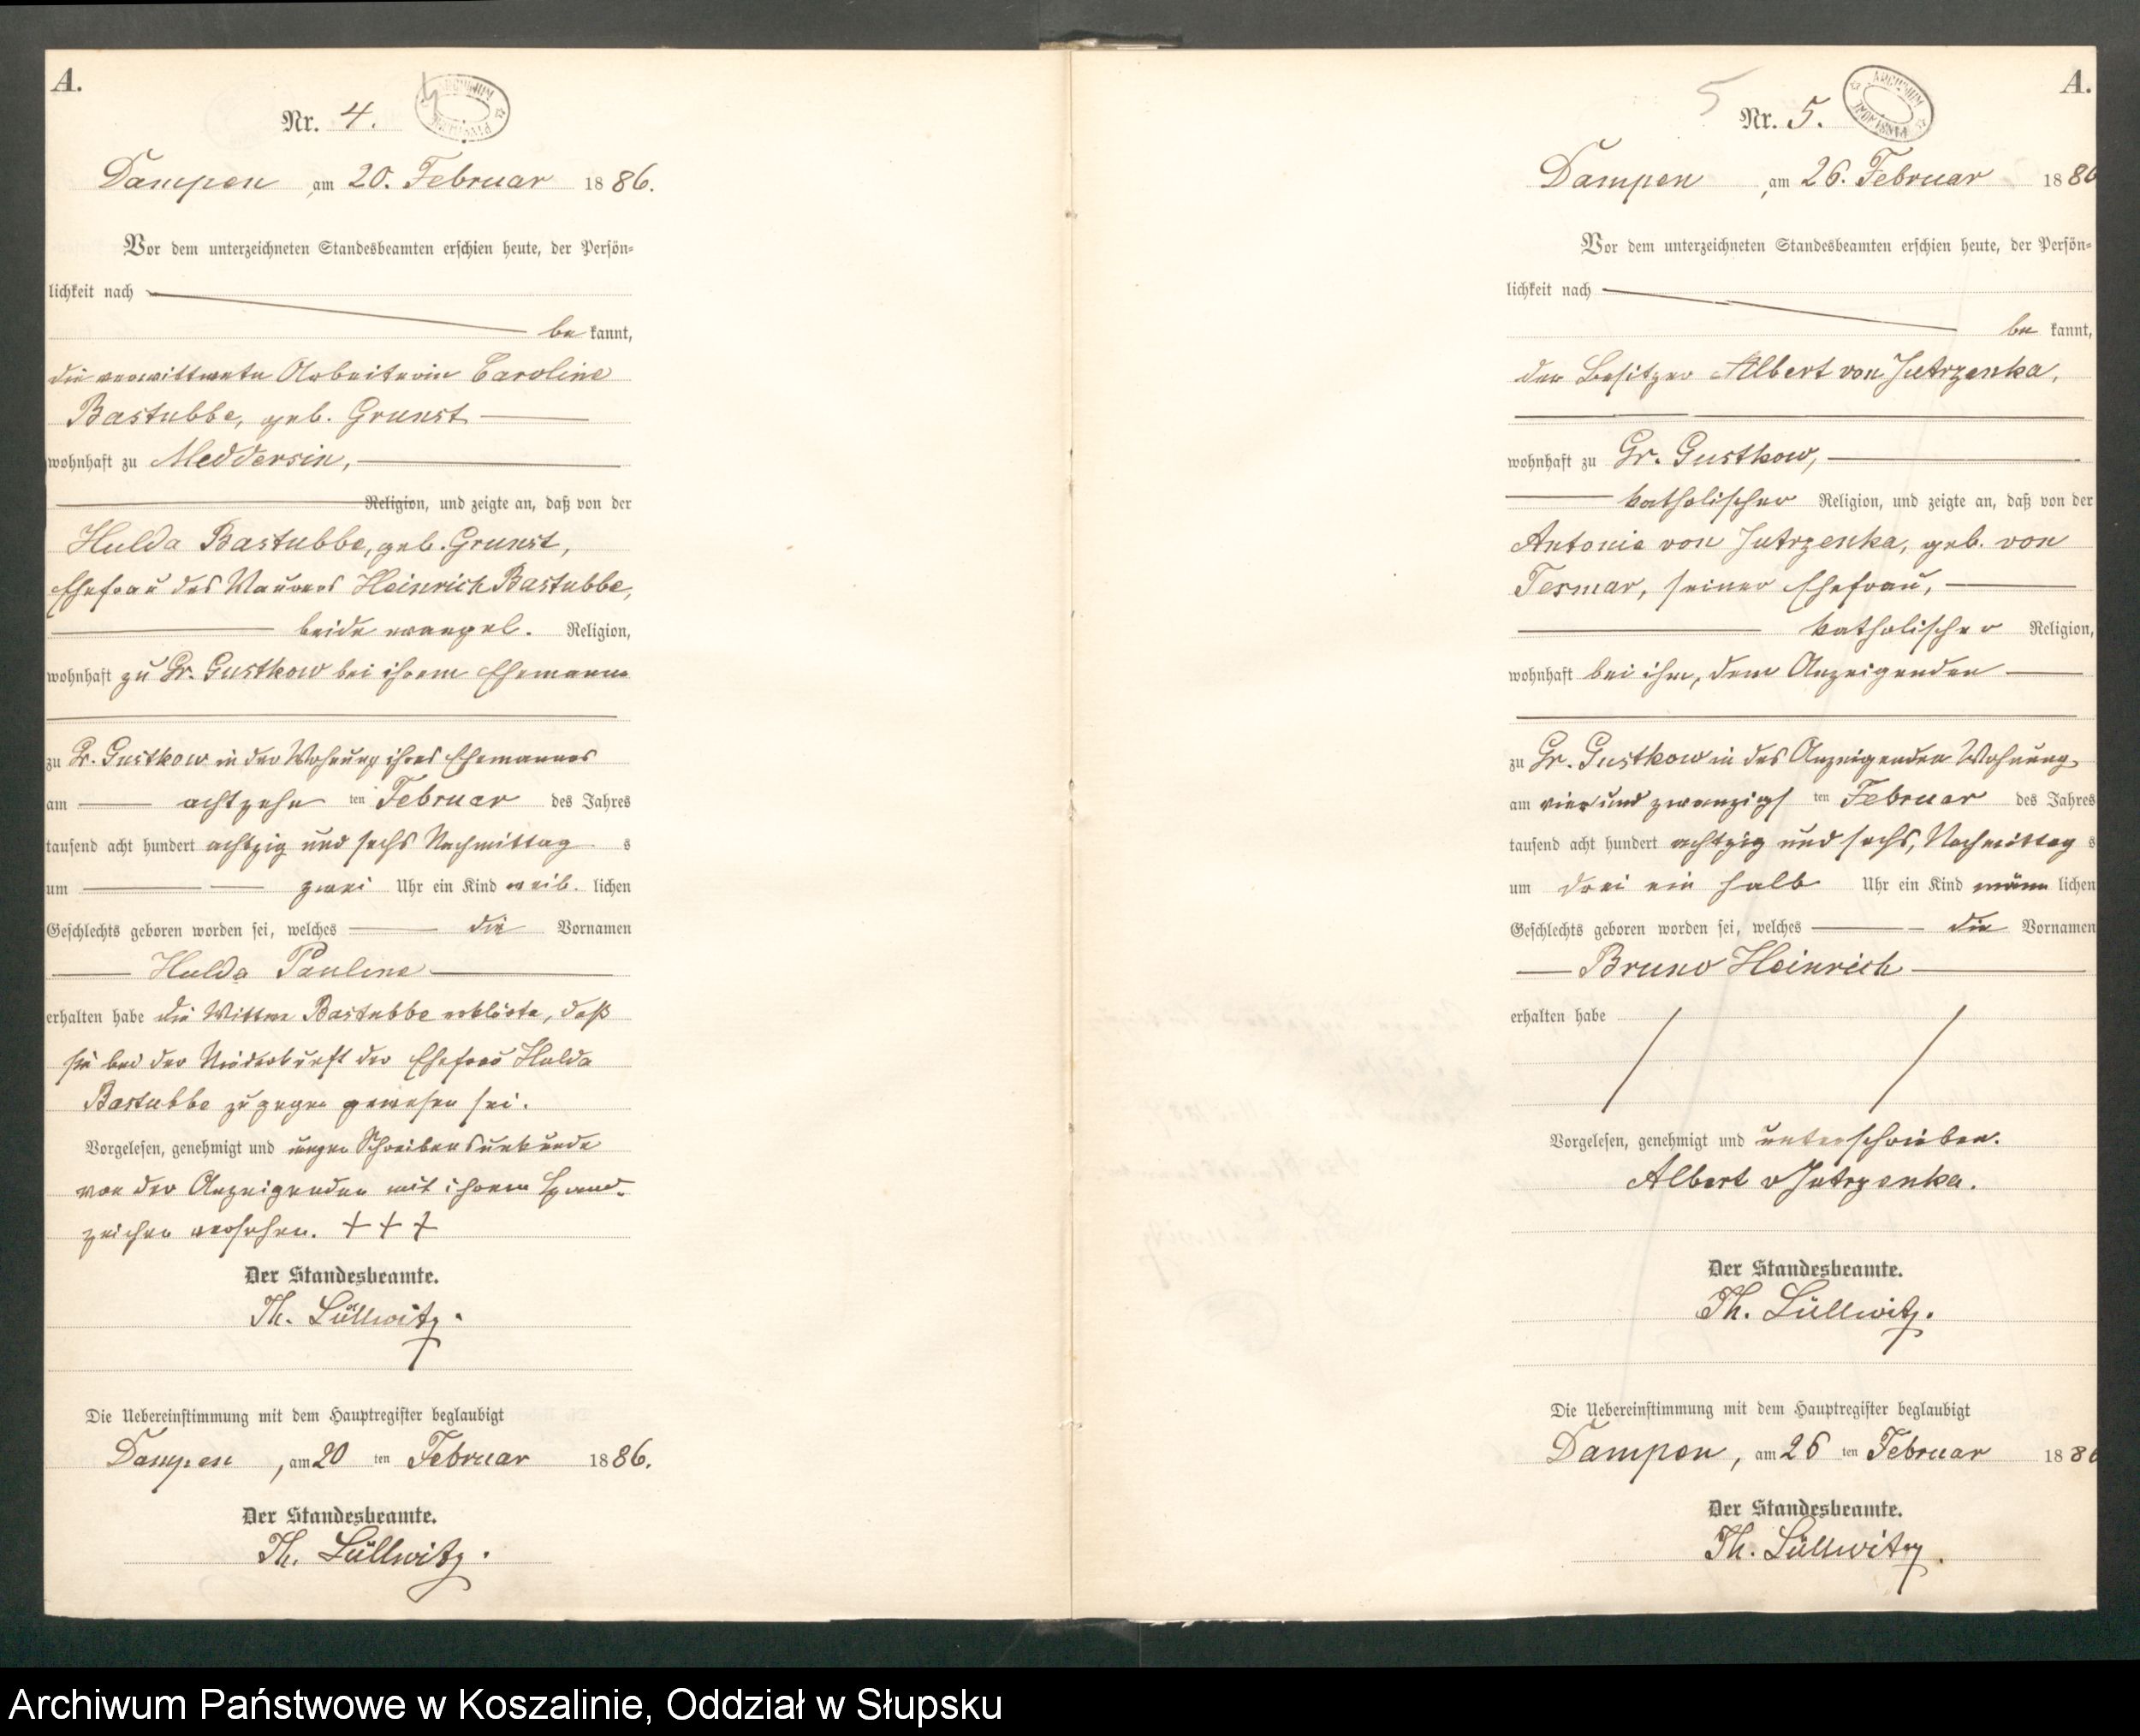 A.
Nr. 4.
Dampen, am 20. Februar 1886.
Vor dem unterzeichneten Standesbeamten erschien heute, der Persön-
lichkeit nach
be kannt,
die verwittwete Arbeiterin Caroline
Bastubbe, geb. Grunst
wohnhaft zu Meddersin,
Religion, und zeigte an, daß von der
Hulda Bastubbe, geb. Grunst,
Ehefrau des Maurers Heinrich Bastubbe,
beide evangel. Religion,
wohnhaft zu Gr. Gustkow bei ihrem Ehemann
zu Gr. Gustkow in der Wohnung ihres Ehemannes
am achtzehn ten Februar des Jahres
tausend acht hundert achtzig und sechs Nachmittag s
um zwei Uhr ein Kind weib. lichen
Geschlechts geboren worden sei, welches die Vornamen
Hulda Pauline
erhalten habe die Wittwe Bastubbe erklärte, daß
sie bei der Niederkunft der Ehefrau Hulda
Bastubbe zugegen gewesen sei.
Vorgelesen, genehmigt und wegen Schreibensunkunde
von der Anzeigenden mit ihrem Hand-
zeichen versehen. + + +
Der Standesbeamte.
Th. Lüllwitz.
Die Uebereinstimmung mit dem Hauptregister beglaubigt
Dampen, am 20 ten Februar 1886.
Der Standesbeamte.
Th. Lüllwitz.
A.
5
Nr. 5.
Dampen, am 26. Februar 1886
Vor dem unterzeichneten Standesbeamten erschien heute, der Persön-
lichkeit nach
be kannt,
der Besitzer Albert von Jutrzenka,
wohnhaft zu Gr. Gustkow,
katholischer Religion, und zeigte an, daß von der
Antonie von Jutrzenka, geb. von
Tesmar, seiner Ehefrau,
katholischer Religion,
wohnhaft bei ihm, dem Anzeigenden
zu Gr. Gustkow in des Anzeigenden Wohnung
am vier und zwanzigs ten Februar des Jahres
tausend acht hundert achtzig und sechs, Nachmittag s
um drei ein halb Uhr ein Kind männ lichen
Geschlechts geboren worden sei, welches die Vornamen
Bruno Heinrich
erhalten habe
Vorgelesen, genehmigt und unterschrieben.
Albert v Jutrzenka.
Der Standesbeamte.
Th. Lüllwitz.
Die Uebereinstimmung mit dem Hauptregister beglaubigt
Dampen, am 26 ten Februar 1886
Der Standesbeamte.
Th. Lüllwitz.
Archiwum Państwowe w Koszalinie, Oddział w Słupsku